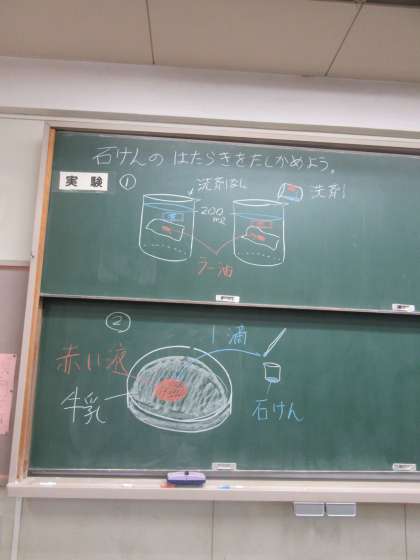 石けんのはたらきをたしかめよう。
実験 ①
洗剤なし
200
mL
洗剤
ラー油
②
赤い液
牛乳
1滴
石けん